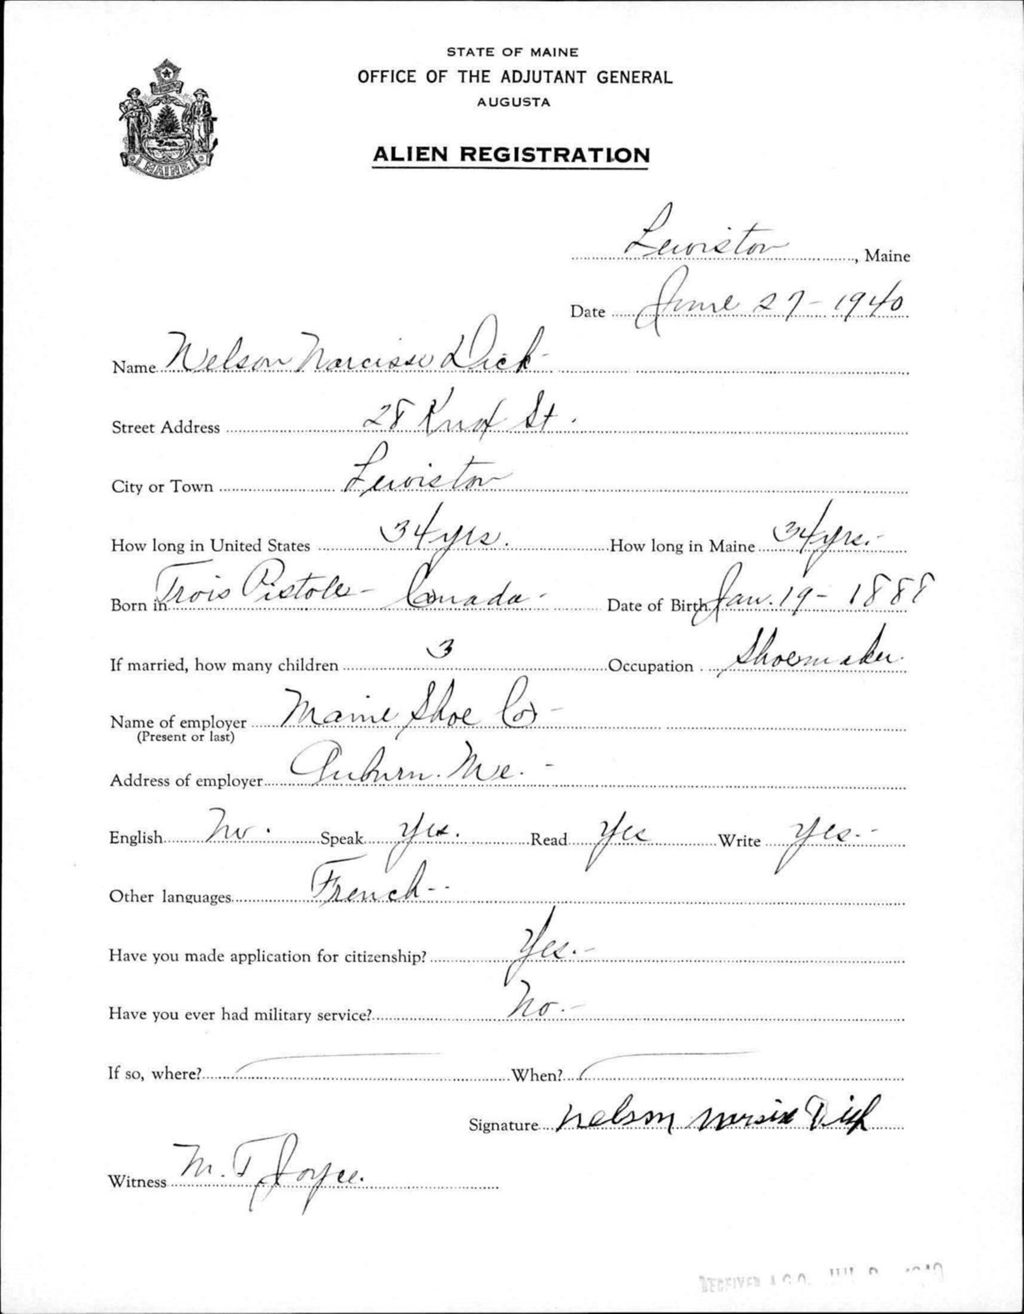 STATE OF MAINE
OFFICE OF THE ADJUTANT GENERAL
AUGUSTA
ALIEN REGISTRATION
MAINE
Lewiston, Maine
Date June 27-1940
Name Nelson Narcisse Dick
Street Address 28 Knox St.
City or Town Lewiston
How long in United States 34 yrs. How long in Maine 34 yrs.-
Born in Trois Pistole- Canada- Date of Birth Jan. 19- 1888
If married, how many children 3 Occupation Shoemaker
Name of employer Maine Shoe Co-
(Present or last)
Address of employer Auburn. Me. -
English No. Speak Yes. Read Yes Write Yes.-
Other languages French--
Have you made application for citizenship? Yes.-
Have you ever had military service? No.-
If so, where? When?
Signature Nelson Dick
Witness M. T Joyce.
RECEIVED A.G.O.